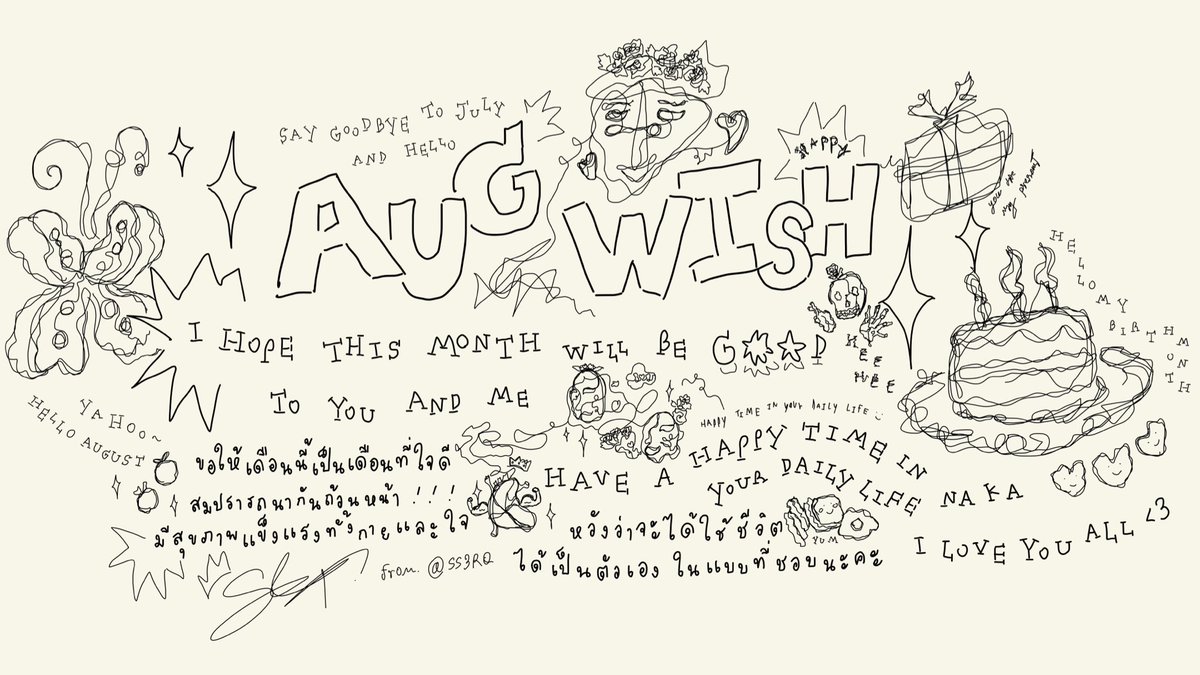 SAY GOODBYE TO JULY
AND HELLO
AUG WISH
HAPPY
you are my present
HELLO MY BIRTH MONTH
I HOPE THIS MONTH WILL BE GOOD
TO YOU AND ME
HEE
HEE
YAHOO~
HELLO AUGUST
HAPPY TIME IN YOUR DAILY LIFE
HAVE A HAPPY TIME IN
YOUR DAILY LIFE NAKA
ขอให้เดือนนี้เป็นเดือนที่ใจดี
สมปรารถนากันถ้วนหน้า !!!
มีสุขภาพแข็งแรงทั้งกายและใจ
หวังว่าจะได้ใช้ชีวิต
ได้เป็นตัวเอง ในแบบที่ชอบนะคะ
YUM
I LOVE YOU ALL <3
from. @SS3RQ